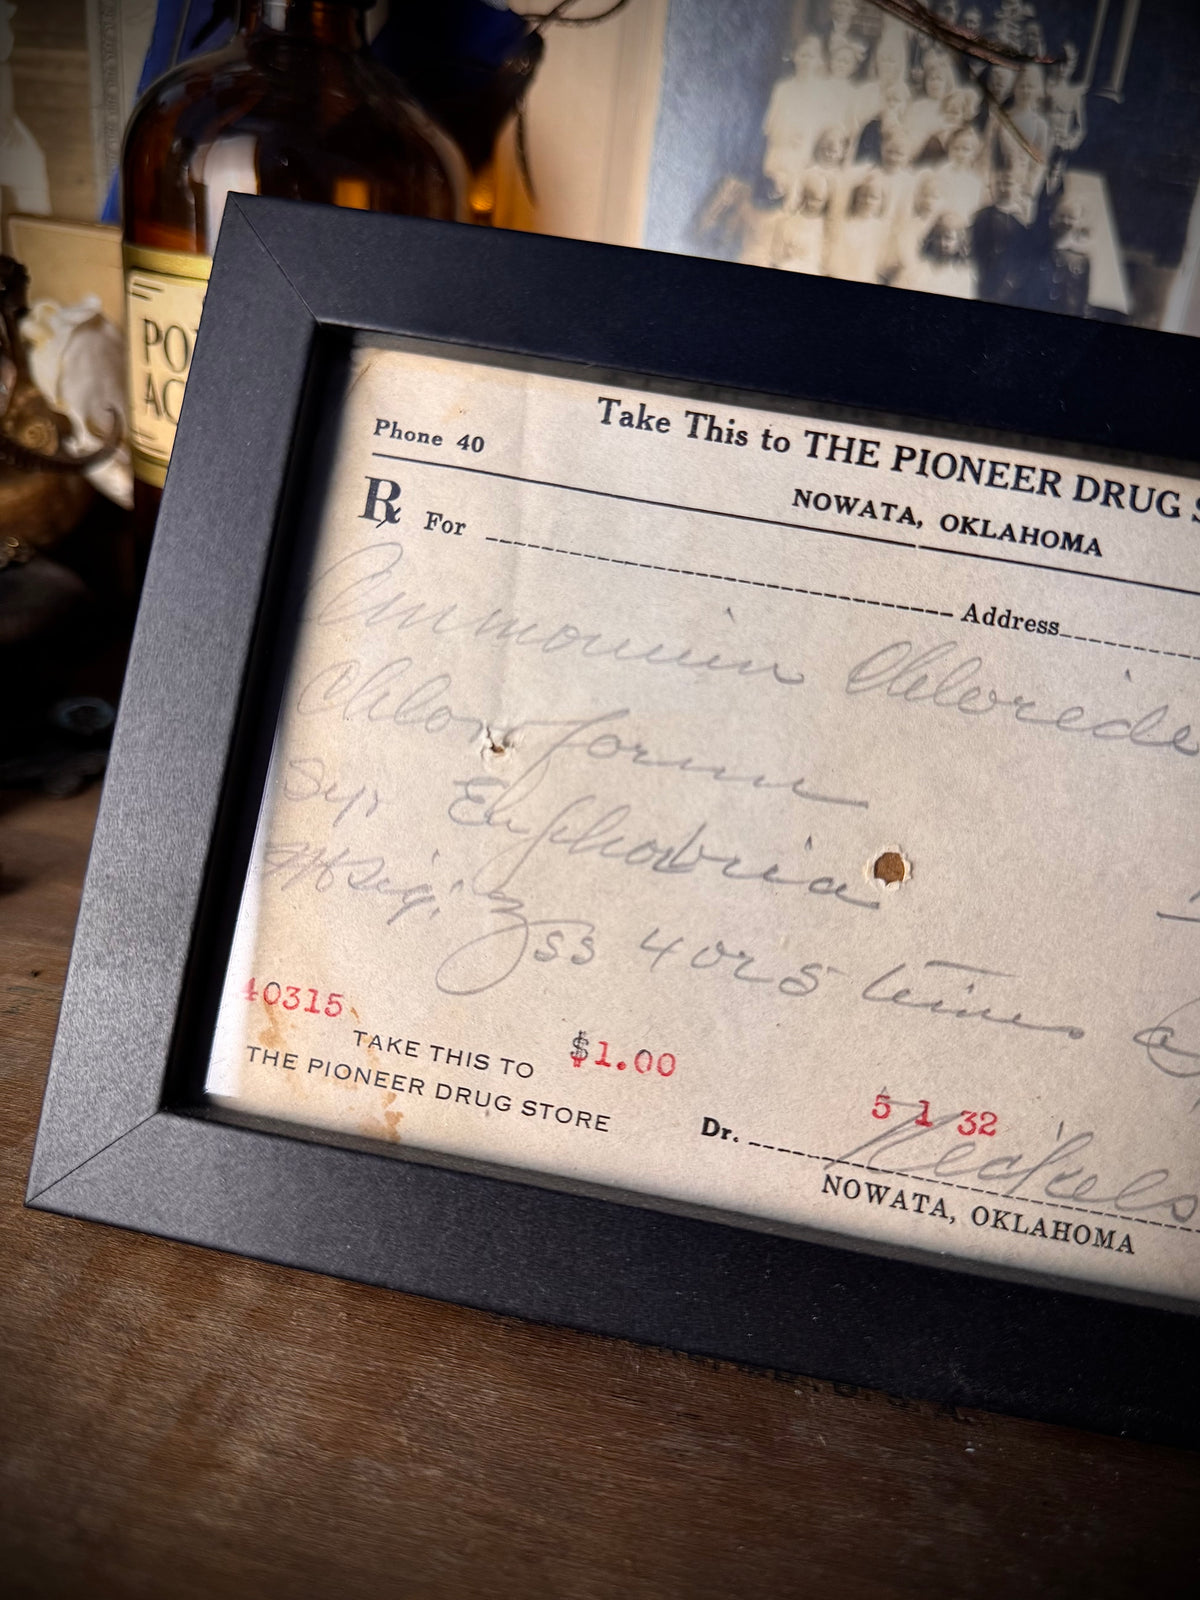 PO
AC
Phone 40
Take This to THE PIONEER DRUG S
NOWATA, OKLAHOMA
℞ For
Address
Ammonium Chloride
Chloroform
Syr Euphorbia
Sig: ʒss 4 or 5 times a
40315
TAKE THIS TO
THE PIONEER DRUG STORE
$1.00
5 1 32
Dr.
NOWATA, OKLAHOMA